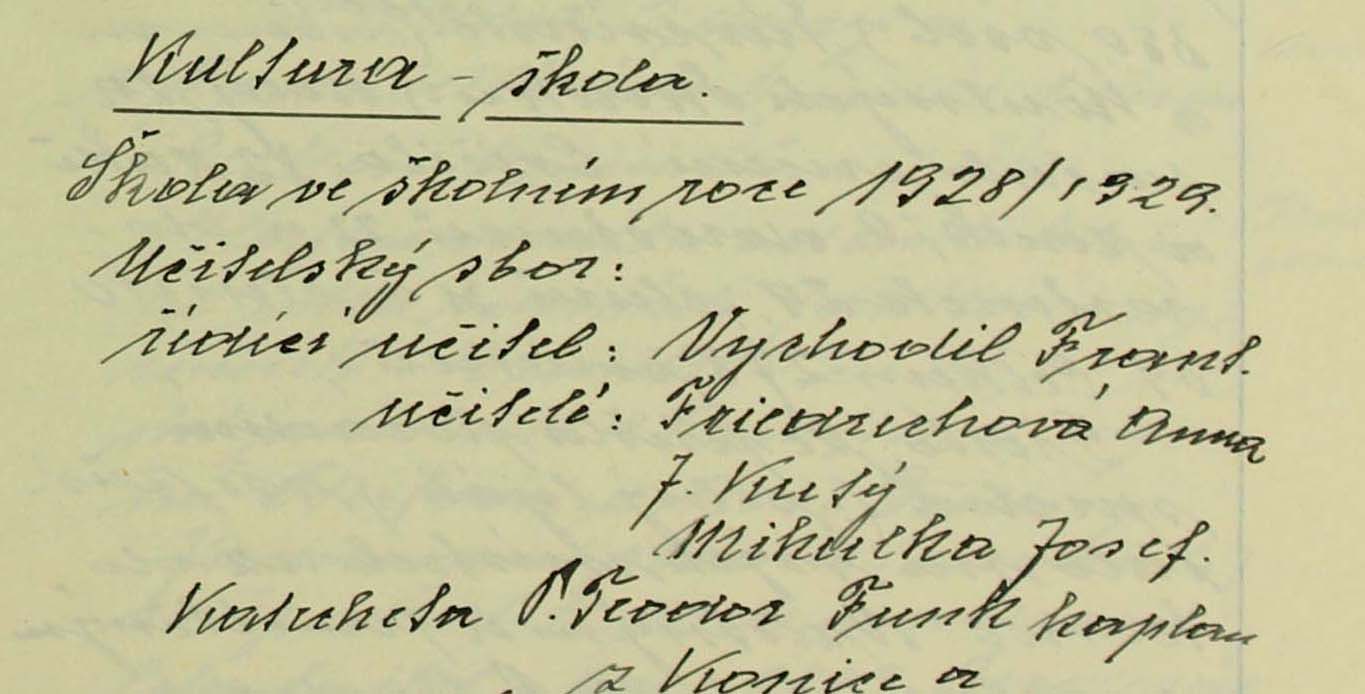 Kultura - škola.
Škola ve školním roce 1928/1929.
Učitelský sbor:
řídící učitel: Vychodil Frant.
učitelé: Friedrichová Anna
J. Kutý
Mikulka Josef.
Katecheta P. Teodor Funk kaplan
z Konice a